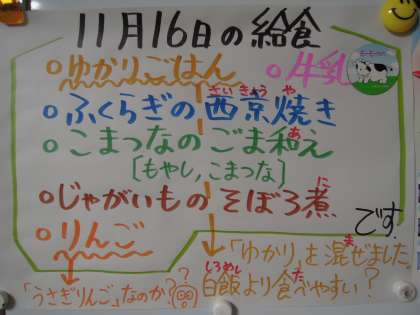 11月16日の給食
○ゆかりごはん ○牛乳
○ふくらぎの西京焼き
○こまつなのごま和え
[もやし,こまつな]
○じゃがいものそぼろ煮
○りんご
です
「うさぎりんご」なのか??
「ゆかり」を混ぜました
白飯より食べやすい?